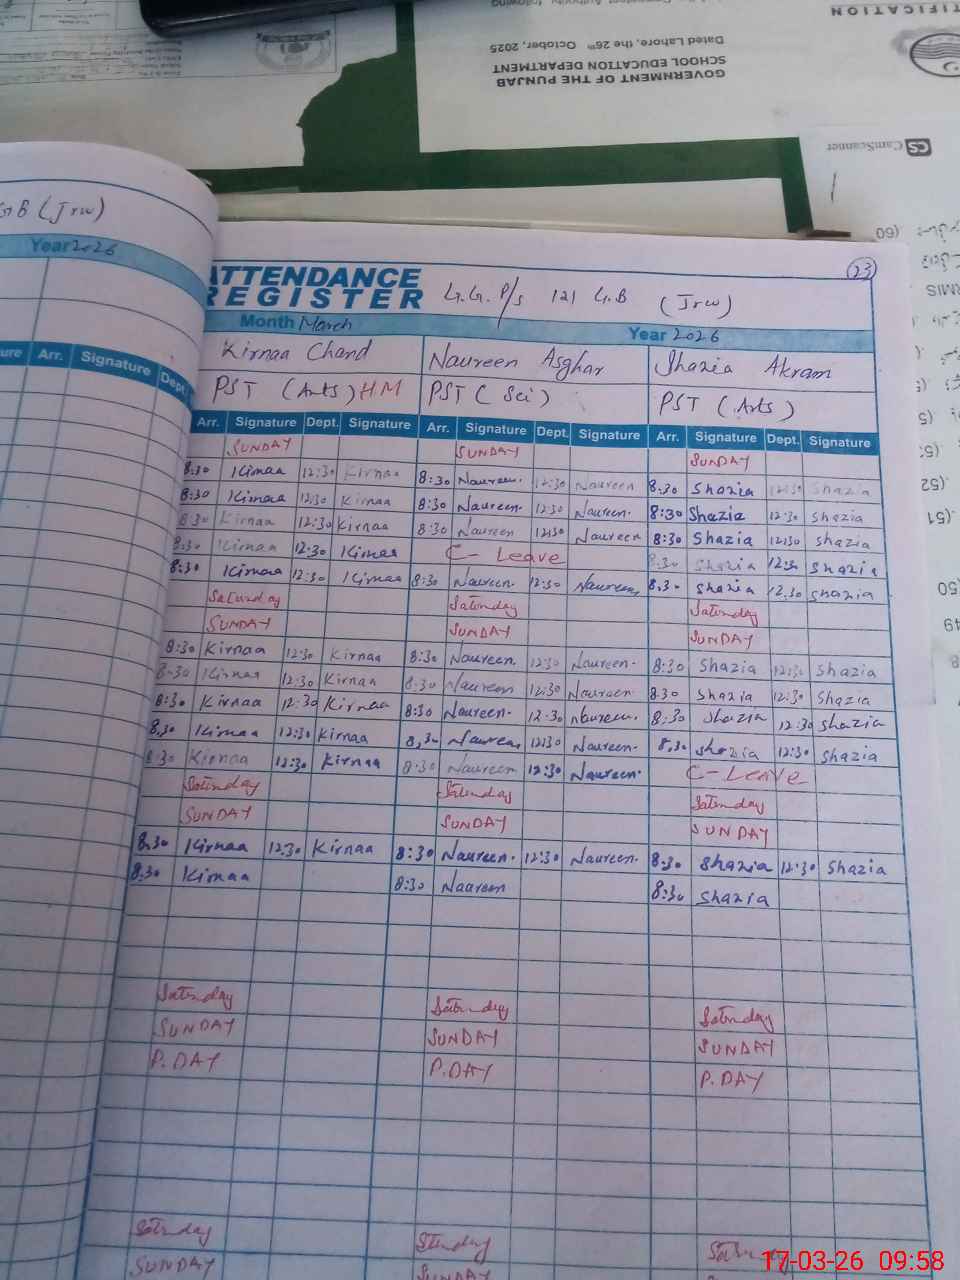 Dated Lahore, the 26th October, 2025
SCHOOL EDUCATION DEPARTMENT
GOVERNMENT OF THE PUNJAB
CS CamScanner
GB (Jrw)
Year 2026
Arr. Signature Dept.
23
ATTENDANCE REGISTER G.G. P/s 121 G.B (Jrw)
Month March Year 2026
Kirnaa Chand Naureen Asghar Shazia Akram
PST (Arts) HM PST (Sci) PST (Arts)
Arr. Signature Dept. Signature Arr. Signature Dept. Signature Arr. Signature Dept. Signature
SUNDAY SUNDAY SUNDAY
8:30 Kirnaa 12:30 Kirnaa 8:30 Naureen. 12:30 Naureen 8:30 Shazia 12:30 Shazia
8:30 Kirnaa 12:30 Kirnaa 8:30 Naureen. 12:30 Naureen. 8:30 Shazia 12:30 Shazia
8:30 Kirnaa 12:30 Kirnaa 8:30 Naureen 12:30 Naureen 8:30 Shazia 12:30 Shazia
8:30 Kirnaa 12:30 Kirnaa C-Leave 8:30 Shazia 12:30 Shazia
8:30 Kirnaa 12:30 Kirnaa 8:30 Naureen. 12:30 Naureen. 8:30 Shazia 12:30 Shazia
Saturday Saturday Saturday
SUNDAY SUNDAY SUNDAY
8:30 Kirnaa 12:30 Kirnaa 8:30 Naureen. 12:30 Naureen. 8:30 Shazia 12:30 Shazia
8:30 Kirnaa 12:30 Kirnaa 8:30 Naureen 12:30 Naureen. 8:30 Shazia 12:30 Shazia
8:30 Kirnaa 12:30 Kirnaa 8:30 Naureen. 12:30 Naureen. 8:30 Shazia 12:30 Shazia
8:30 Kirnaa 12:30 Kirnaa 8:30 Naureen 12:30 Naureen. 8:30 Shazia 12:30 Shazia
8:30 Kirnaa 12:30 Kirnaa 8:30 Naureen 12:30 Naureen. C-Leave
Saturday Saturday Saturday
SUNDAY SUNDAY SUNDAY
8:30 Kirnaa 12:30 Kirnaa 8:30 Naureen. 12:30 Naureen. 8:30 Shazia 12:30 Shazia
8:30 Kirnaa 8:30 Naureen 8:30 Shazia
Saturday Saturday Saturday
SUNDAY SUNDAY SUNDAY
P.DAY P.DAY P.DAY
Saturday Saturday
SUNDAY SUNDAY
17-03-26 09:58